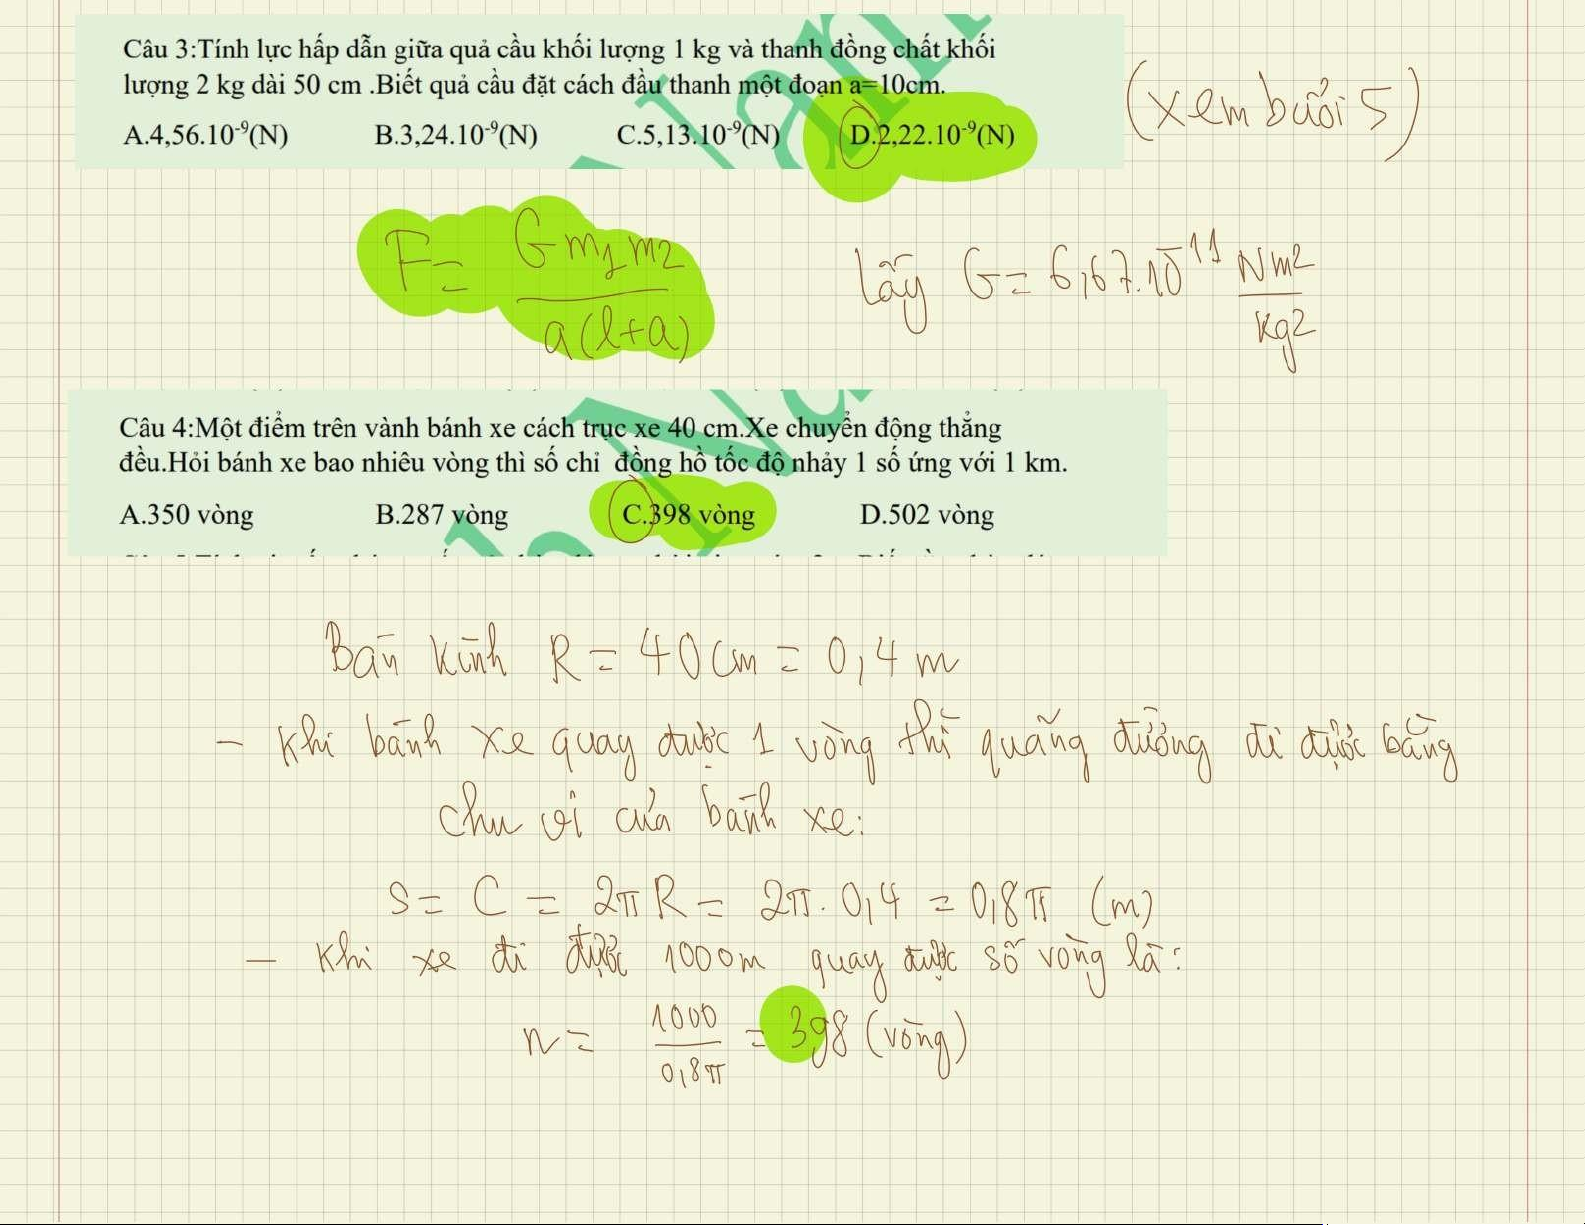 Câu 3:Tính lực hấp dẫn giữa quả cầu khối lượng 1 kg và thanh đồng chất khối
lượng 2 kg dài 50 cm .Biết quả cầu đặt cách đầu thanh một đoạn a=10cm.
A.4,56.10⁻⁹(N) B.3,24.10⁻⁹(N) C.5,13.10⁻⁹(N) D.2,22.10⁻⁹(N)
(xem buổi 5)
F = G m1 m2 / a(l+a)
Lấy G = 6,67.10⁻¹¹ Nm²/kg²
Câu 4:Một điểm trên vành bánh xe cách trục xe 40 cm.Xe chuyển động thẳng
đều.Hỏi bánh xe bao nhiêu vòng thì số chỉ đồng hồ tốc độ nhảy 1 số ứng với 1 km.
A.350 vòng B.287 vòng C.398 vòng D.502 vòng
Bán kính R = 40cm = 0,4 m
- Khi bánh xe quay được 1 vòng thì quãng đường đi được bằng
chu vi của bánh xe:
S = C = 2πR = 2π.0,4 = 0,8π (m)
- Khi xe đi được 1000m quay được số vòng là:
n = 1000 / 0,8π = 398 (vòng)